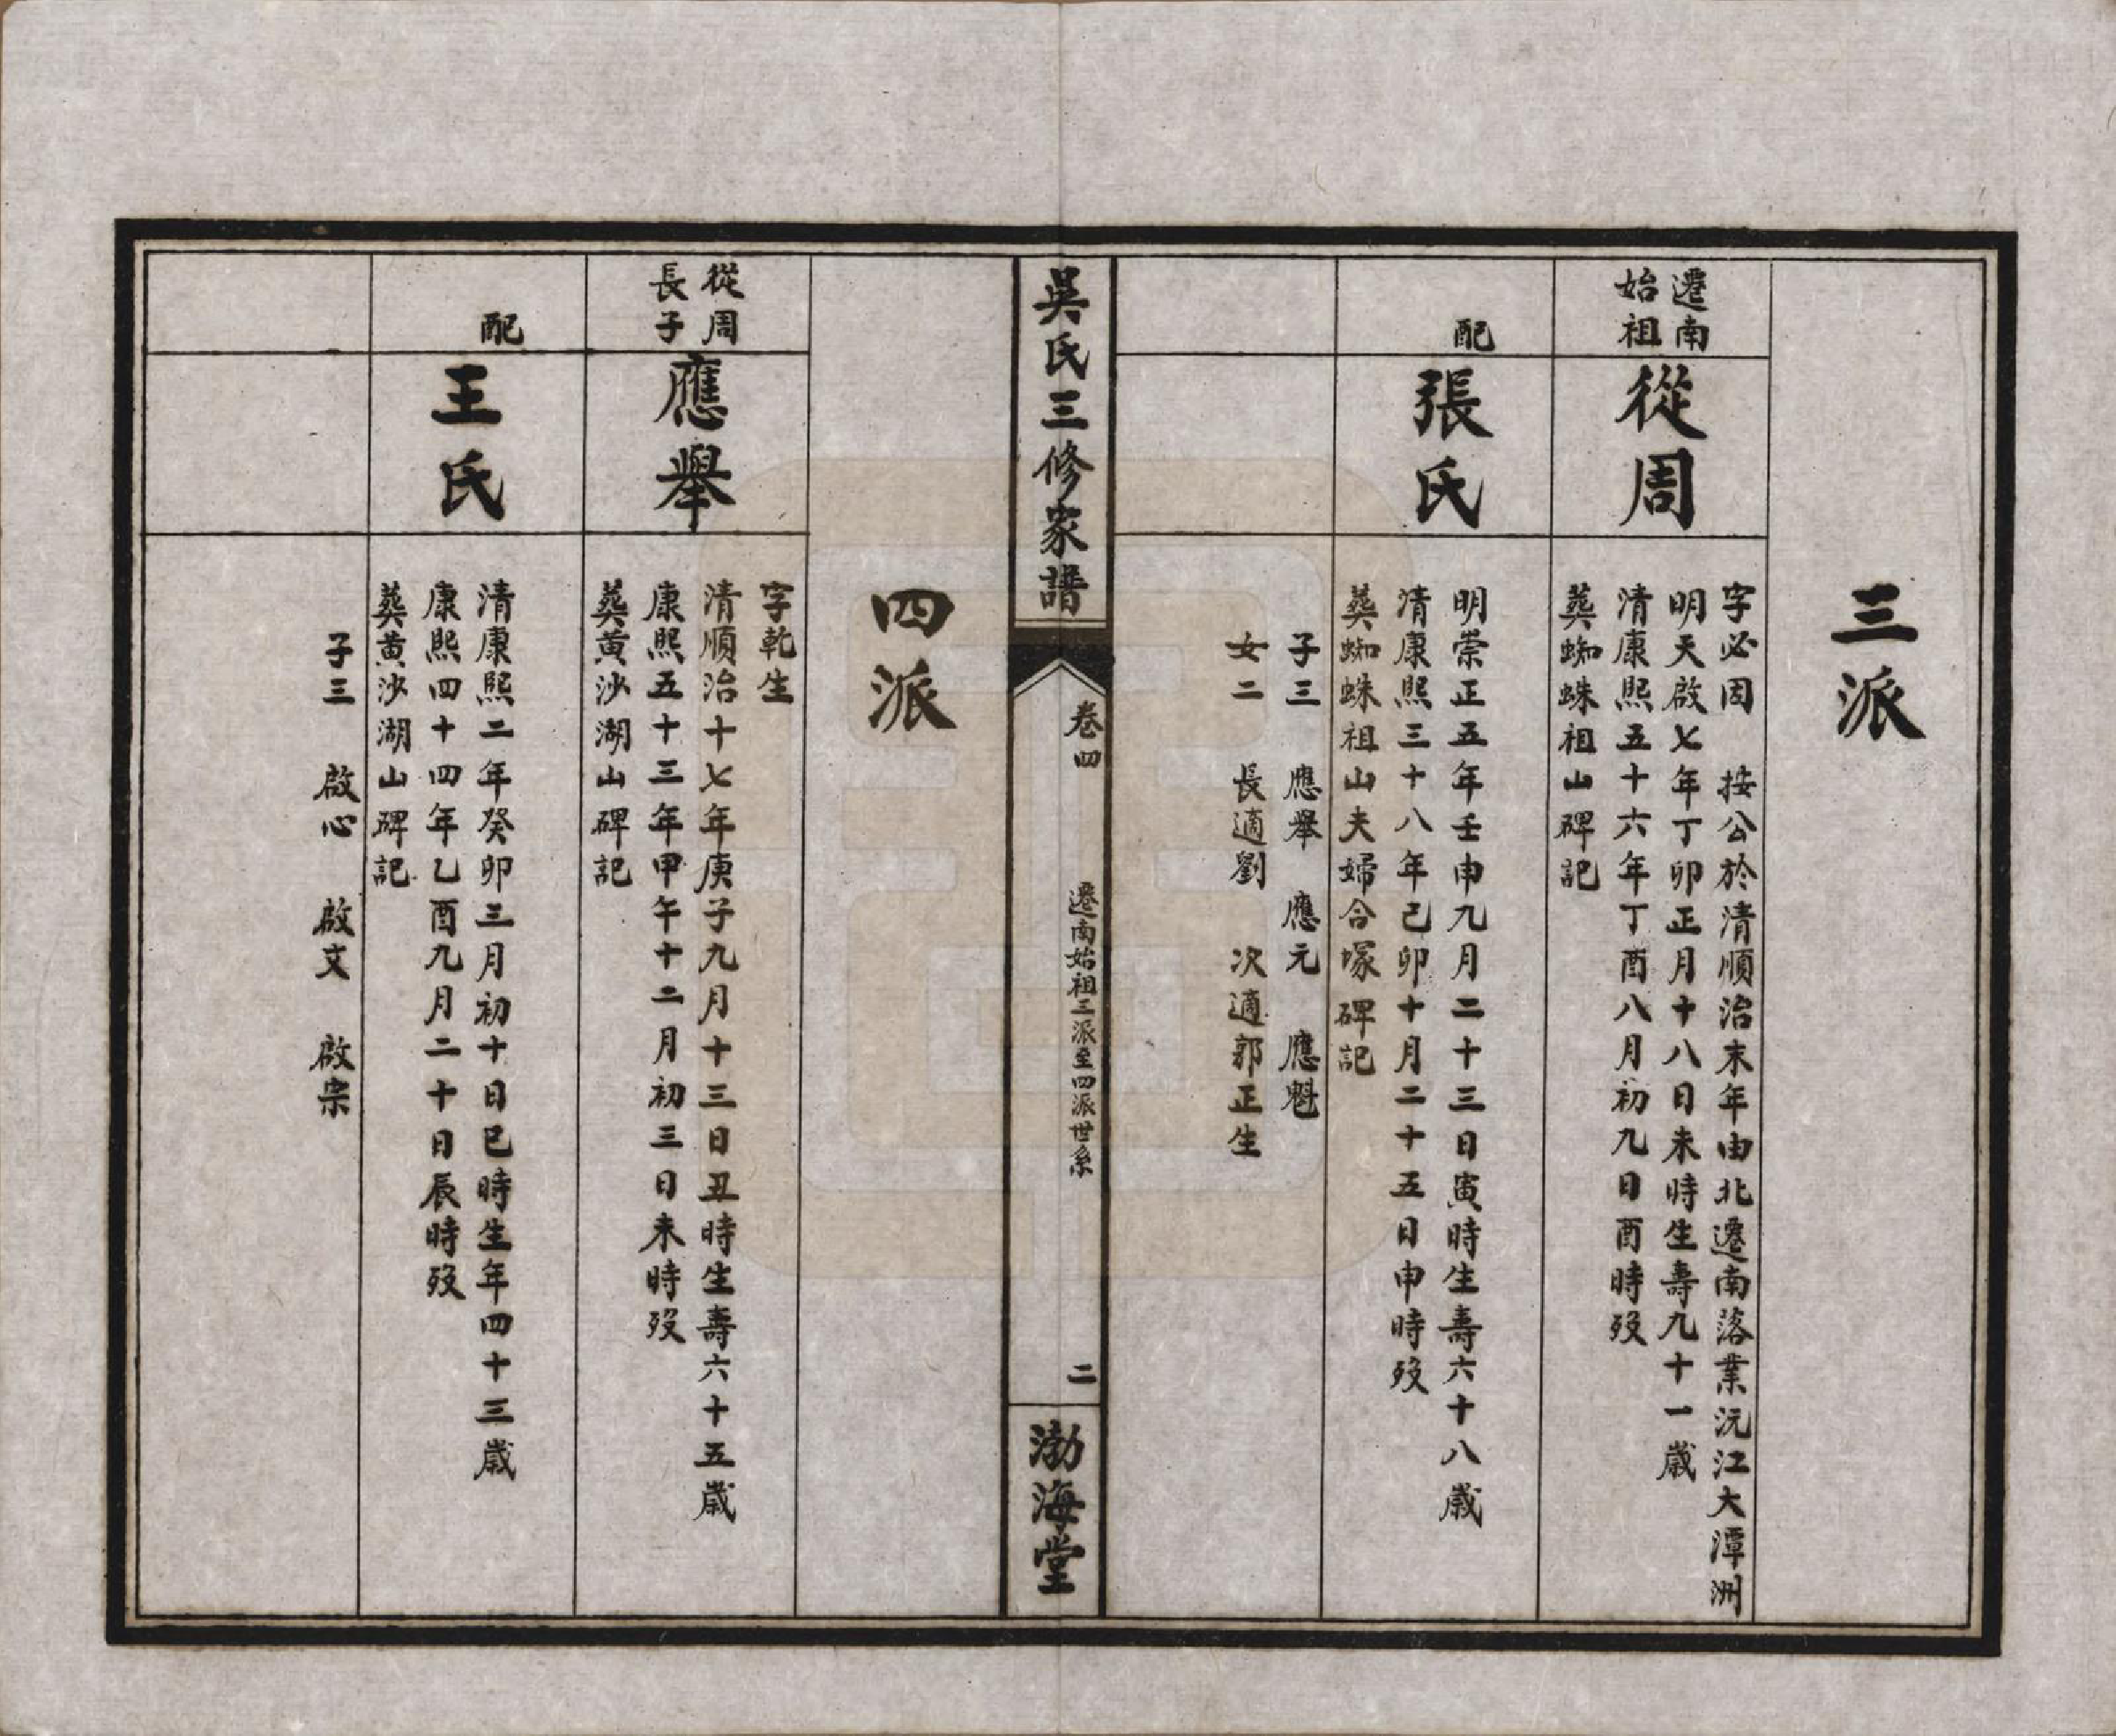 三派
遷南
始祖
從周
字必因　按公於清順治末年由北遷南落業沅江大潭洲
明天啟七年丁卯正月十八日未時生壽九十一歲
清康熙五十六年丁酉八月初九日酉時歿
葬蜘蛛祖山碑記
配
張氏
明崇正五年壬申九月二十三日寅時生壽六十八歲
清康熙三十八年己卯十月二十五日申時歿
葬蜘蛛祖山夫婦合塚碑記
子三　應舉　應元　應魁
女二　長適劉　次適郭正生
吳氏三修家譜
卷四
遷南始祖三派至四派世系
二
渤海堂
四派
從周
長子
應舉
字乾生
清順治十七年庚子九月十三日丑時生壽六十五歲
康熙五十三年甲午十二月初三日未時歿
葬黃沙湖山碑記
配
王氏
清康熙二年癸卯三月初十日巳時生年四十三歲
康熙四十四年乙酉九月二十日辰時歿
葬黃沙湖山碑記
子三　啟心　啟文　啟宗